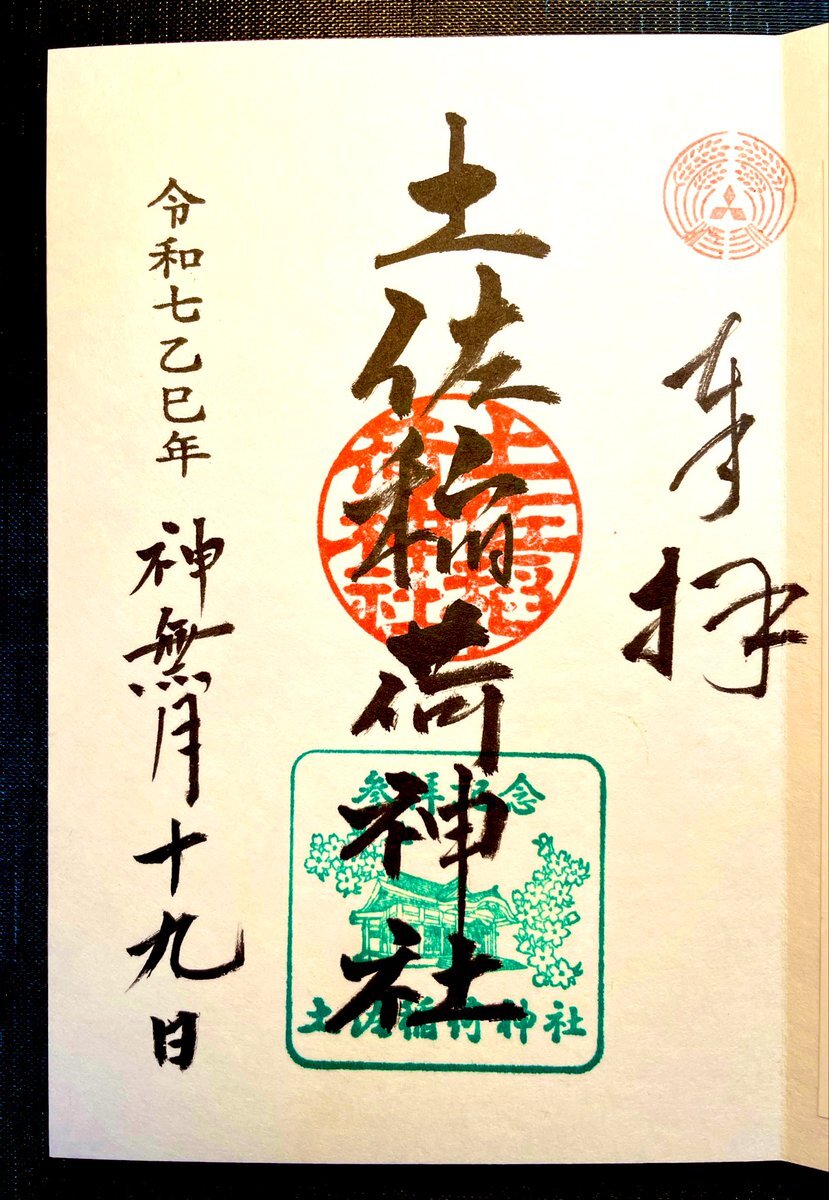 奉拝
土佐稲荷神社
土佐稲荷神社
参拝記念
土佐稲荷神社
令和七乙巳年 神無月十九日